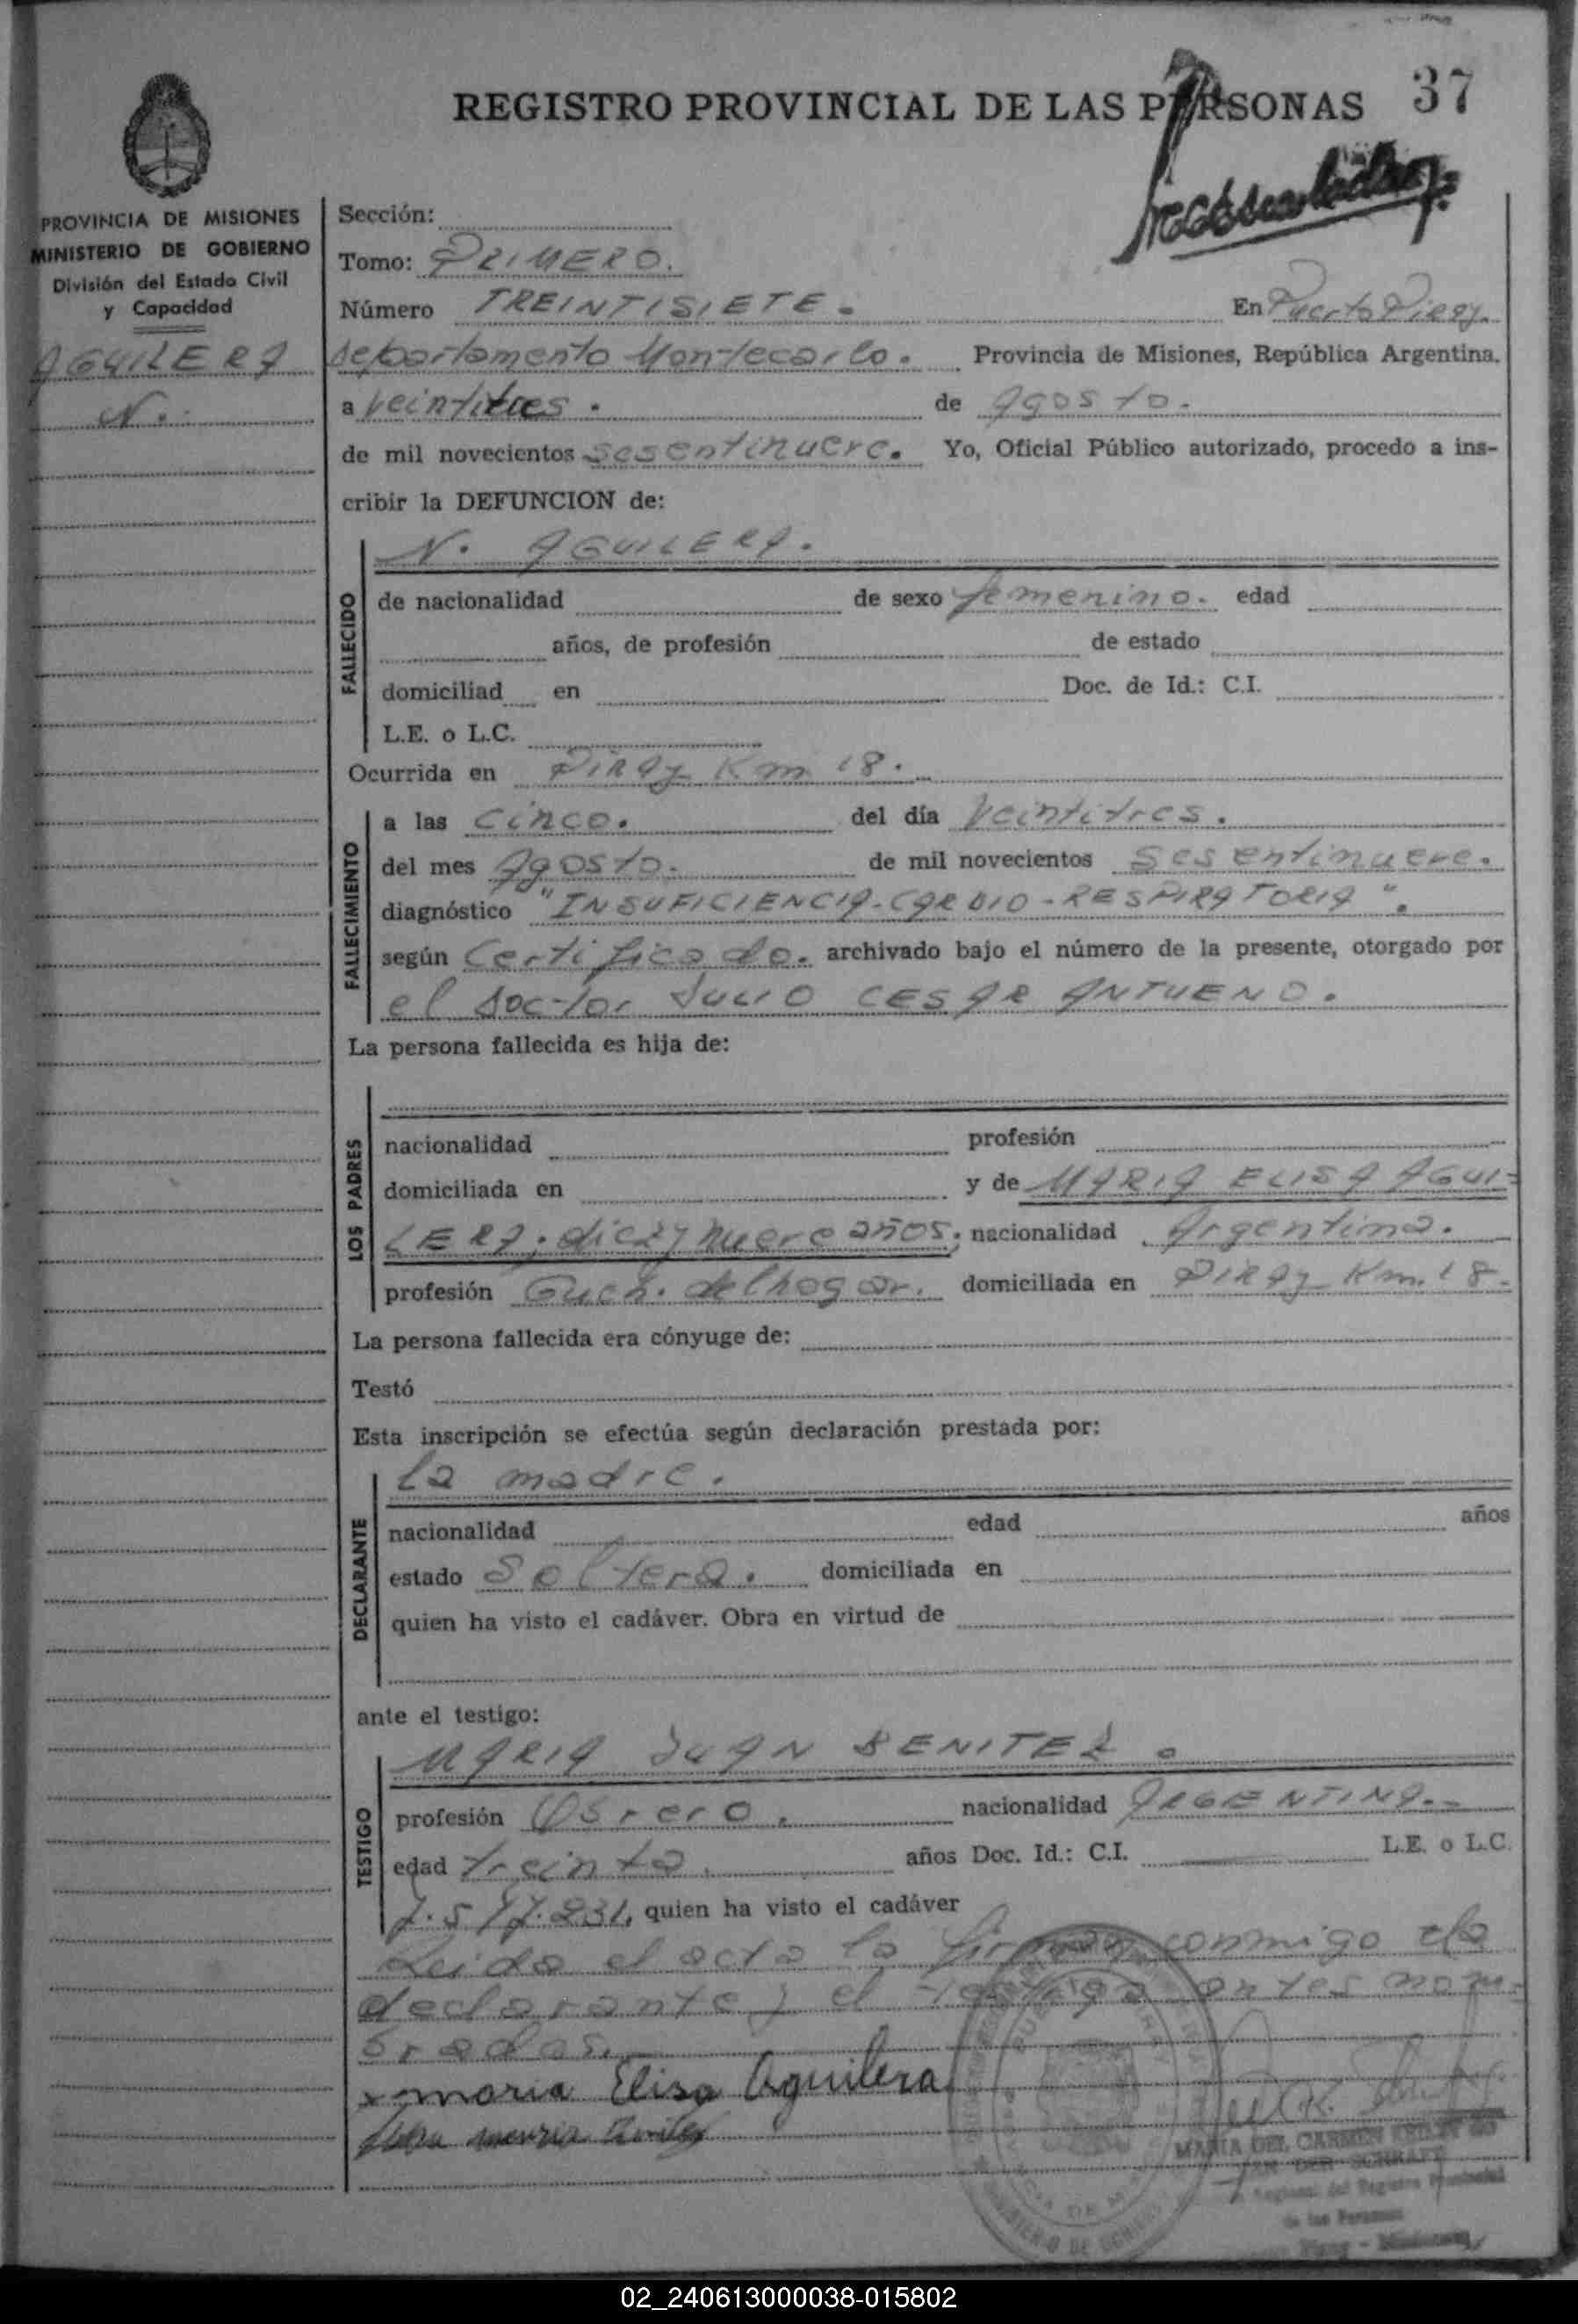 REGISTRO PROVINCIAL DE LAS PERSONAS 37
PROVINCIA DE MISIONES
MINISTERIO DE GOBIERNO
División del Estado Civil
y Capacidad
AGUILERA
N.
Sección:
Tomo: PRIMERO.
Número TREINTISIETE. En Puerto Piray.
departamento Montecarlo. Provincia de Misiones, República Argentina.
a veintitres. de Agosto.
de mil novecientos sesentinueve. Yo, Oficial Público autorizado, procedo a ins-
cribir la DEFUNCION de:
N. AGUILERA.
FALLECIDO
de nacionalidad de sexo femenino. edad
años, de profesión de estado
domiciliad en Doc. de Id.: C.I.
L.E. o L.C.
Ocurrida en PIRAY Km 18.
FALLECIMIENTO
a las cinco. del día veintitres.
del mes Agosto. de mil novecientos sesentinueve.
diagnóstico "INSUFICIENCIA-CARDIO-RESPIRATORIA".
según Certificado. archivado bajo el número de la presente, otorgado por
el doctor JULIO CESAR ANTUENO.
La persona fallecida es hija de:
LOS PADRES
nacionalidad profesión
domiciliada en y de MARIA ELISA AGUI=
LERA. diez y nueve años. nacionalidad Argentina.
profesión Queh. del hogar. domiciliada en PIRAY Km. 18.
La persona fallecida era cónyuge de:
Testó
Esta inscripción se efectúa según declaración prestada por:
La madre.
DECLARANTE
nacionalidad edad años
estado Soltera. domiciliada en
quien ha visto el cadáver. Obra en virtud de
ante el testigo:
MARIA JUAN BENITEZ.
TESTIGO
profesión Obrero. nacionalidad ARGENTINA.
edad treinta. años Doc. Id.: C.I. L.E. o L.C.
7.5 231, quien ha visto el cadáver
Leida el acta la firman conmigo la
declarante y el testigo antes nom=
brados.
x maria Elisa Aguilera
MARIA DEL CARMEN
Regional del Registro Provincial
de las Personas
02_240613000038-015802